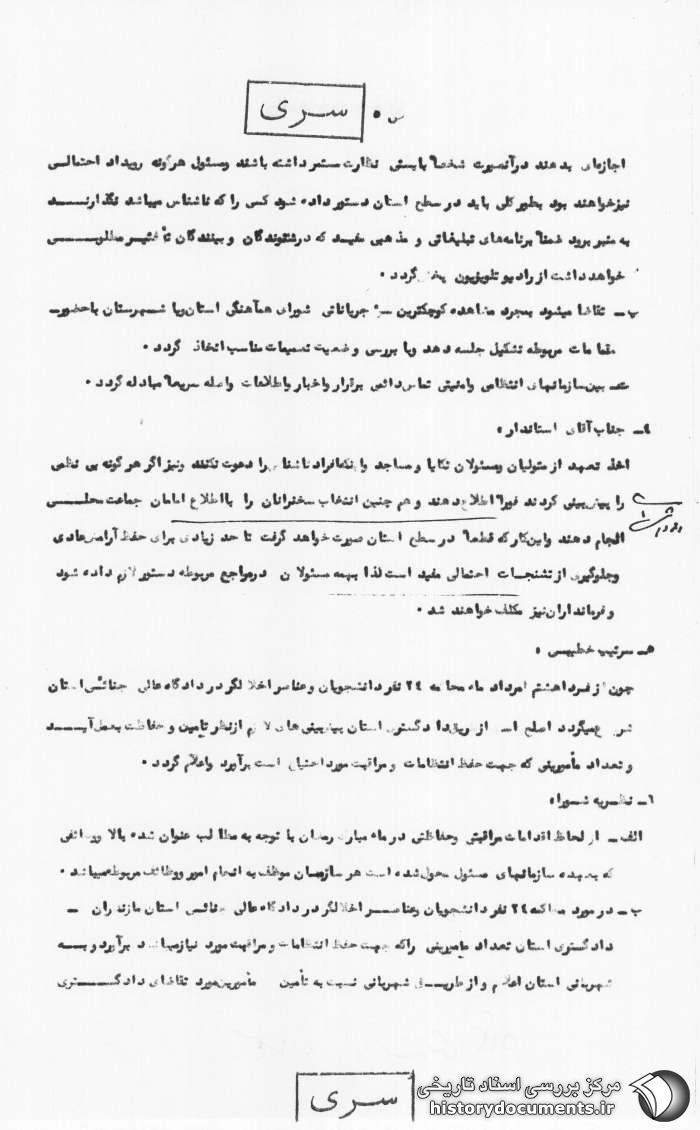 سری
اجازه‌ای بدهند در آنصورت شخصاً بایستی نظارت مستمر داشته باشند ومسئول هرگونه رویداد احتمالی
نیز خواهند بود بطور کلی باید در سطح استان دستور داده شود کسی را که ناشناس میباشد نگذارنـــد
به منبر برود ضمناً برنامه‌های تبلیغاتی و مذهبی مفید که در شنوندگان و بینندگان تأثیر مطلوبـــی
خواهد داشت از رادیو تلویزیون پخش گردد .
ب ـ تقاضا میشود بمجرد مشاهده کوچکترین جریاناتی شورای هم‌آهنگی استان ویا شهرستان با حضور ـ
مقامات مربوطه تشکیل جلسه دهد وبا بررسی وضعیت تصمیمات مناسب اتخاذ گردد .
ت ـ بین سازمانهای انتظامی وامنیتی تماس دائمی برقرار واخبار واطلاعات واصله سریعاً مبادله گردد .
جناب آقای استاندار :
اخذ تعهد از متولیان ومسئولان تکایا و مساجد واینکه افراد ناشناس را دعوت نکنند ونیز اگر هرگونه بی نظمی
را پیش‌بینی کردند فوراً اطلاع دهند و هم چنین انتخاب سخنرانان را با اطلاع امامان جماعت محلـــی
انجام دهند واین کار که قطعاً در سطح استان صورت خواهد گرفت تا حد زیادی برای حفظ آرامش عادی
وجلوگیری از تشنجات احتمالی مفید است لذا بهمه مسئولان در مراجع مربوطه دستور لازم داده شود
و فرمانداران نیز مکلف خواهند شد .
۵ـ سرتیپ خطیبی :
چون از فردا هشتم امرداد ماه محاکمه ۲۴ نفر دانشجویان وعناصر اخلالگر در دادگاه عالی جنائی استان
شروع میگردد اصلح است از طریق دادگستری استان پیش‌بینی‌های لازم از نظر تأمین و حفاظت بعمل آیـــد
و تعداد مأمورینی که جهت حفظ انتظامات و مراقبت مورد احتیاج است برآورد واعلام گردد .
۶ـ نظریه شورا :
الف ـ از لحاظ اقدامات مراقبتی وحفاظتی در ماه مبارک رمضان با توجه به مطالب عنوان شده بالا ووظائفی
که بعهده سازمانهای مسئول محول شده است هر سازمان موظف به انجام امور ووظائف مربوطه میباشد .
ب ـ در مورد محاکمه ۲۴ نفر دانشجویان وعناصـــر اخلالگر در دادگاه عالی جنائی استان مازندران ـ
دادگستری استان تعداد مأمورینی را که جهت حفظ انتظامات و مراقبت مورد نیاز میباشد برآورد و بـــه
شهربانی استان اعلام و از طریـــق شهربانی نسبت به تأمین مأمورین مورد تقاضای دادگـــستری
سری
مرکز بررسی اسناد تاریخی
historydocuments.ir